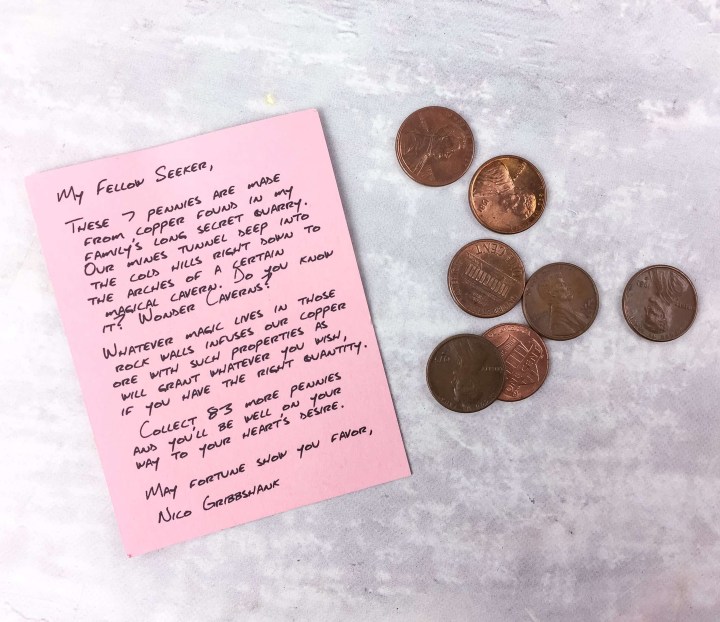 My Fellow Seeker,
These 7 pennies are made
from copper found in my
family's long secret quarry.
Our mines tunnel deep into
the cold hills right down to
the arches of a certain
magical cavern. Do you know
it? Wonder Caverns?
Whatever magic lives in those
rock walls infuses our copper
ore with such properties as
will grant whatever you wish,
if you have the right quantity.
Collect 83 more pennies
and you'll be well on your
way to your heart's desire.
May fortune show you favor,
Nico Gribbshank